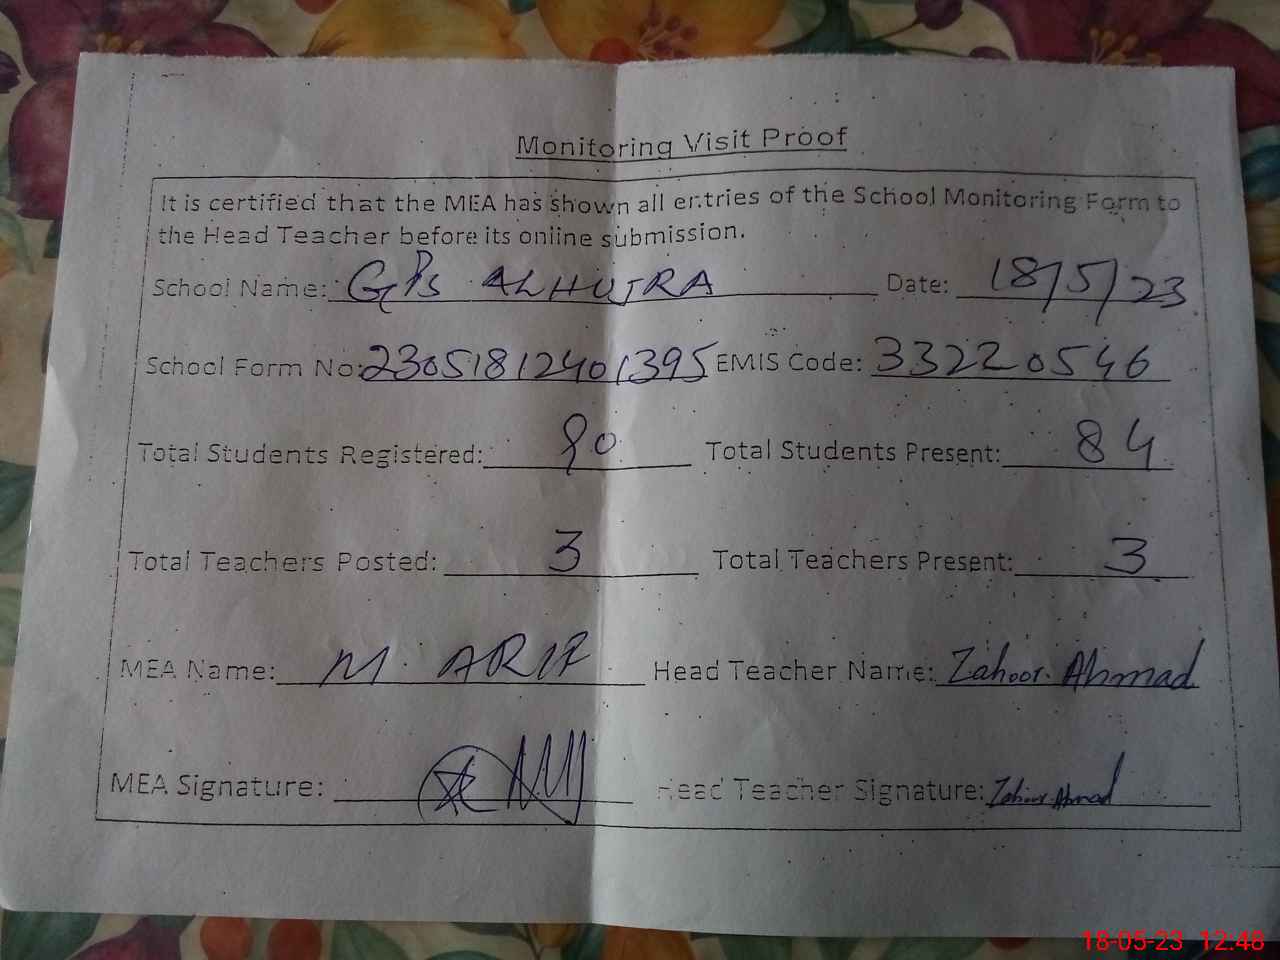 Monitoring Visit Proof
It is certified that the MEA has shown all entries of the School Monitoring Form to
the Head Teacher before its online submission.
School Name: GPS ALHUJRA Date: 18/5/23
School Form No: 23051812401395 EMIS Code: 33220546
Total Students Registered: 90 Total Students Present: 84
Total Teachers Posted: 3 Total Teachers Present: 3
MEA Name: M. ARIF Head Teacher Name: Zahoor Ahmad
MEA Signature: Head Teacher Signature: Zahoor Ahmad
18-05-23 12:48